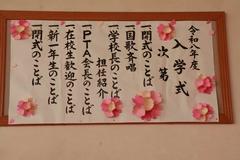 令和八年度
入学式
次第
一開式のことば
一国歌斉唱
一学校長のことば
担任紹介
一PTA会長のことば
一在校生歓迎のことば
一新一年生のことば
一閉式のことば